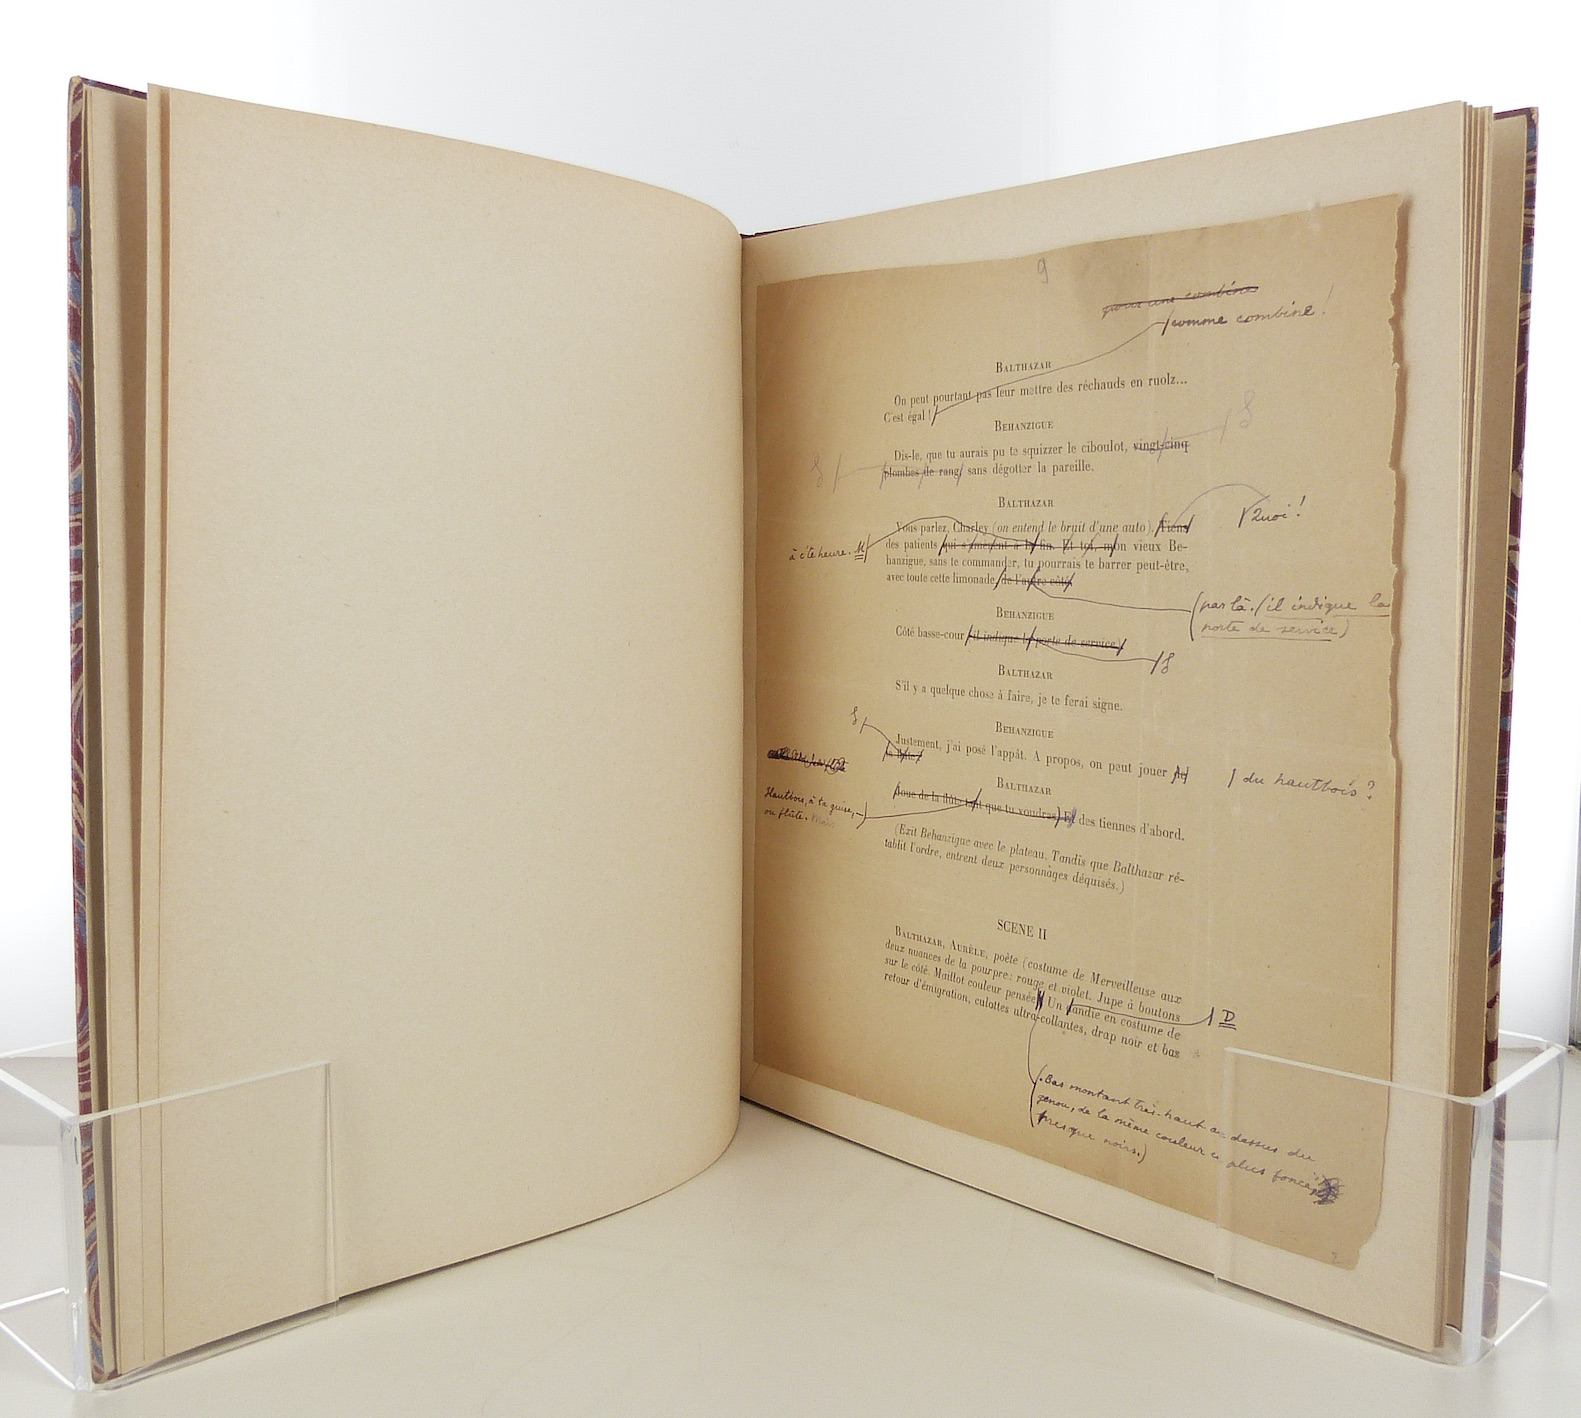 9
pour une combine
comme combine !
BALTHAZAR
On peut pourtant pas leur mettre des réchauds en ruolz...
C'est égal !
BEHANZIGUE
Dis-le, que tu aurais pu te squizzer le ciboulot, vingt-cinq
plombes de rang, sans dégotter la pareille.
BALTHAZAR
Vous parlez, Charley (on entend le bruit d'une auto). Tiens
Quoi !
des patients qui s'amènent à la fin. Et toi, mon vieux Be-
à c'te heure. M
hanzigue, sans te commander, tu pourrais te barrer peut-être,
avec toute cette limonade, de l'autre côté.
par là. (il indique la
porte de service)
BEHANZIGUE
Côté basse-cour (il indique la porte de service)
BALTHAZAR
S'il y a quelque chose à faire, je te ferai signe.
BEHANZIGUE
Justement, j'ai posé l'appât. A propos, on peut jouer de
la flûte ?
du hautbois ?
BALTHAZAR
Hautbois, à ta guise,
ou flûte. Mais
Joue de la flûte tant que tu voudras. Et des tiennes d'abord.
(Exit Behanzigue avec le plateau. Tandis que Balthazar ré-
tablit l'ordre, entrent deux personnages déguisés.)
SCENE II
BALTHAZAR, AURÈLE, poète (costume de Merveilleuse aux
deux nuances de la pourpre : rouge et violet. Jupe à boutons
sur le côté. Maillot couleur pensée Un dandie en costume de
D
retour d'émigration, culottes ultra-collantes, drap noir et bas
. Bas montant très-haut au dessus du
genou, de la même couleur plus foncée
presque noirs.)